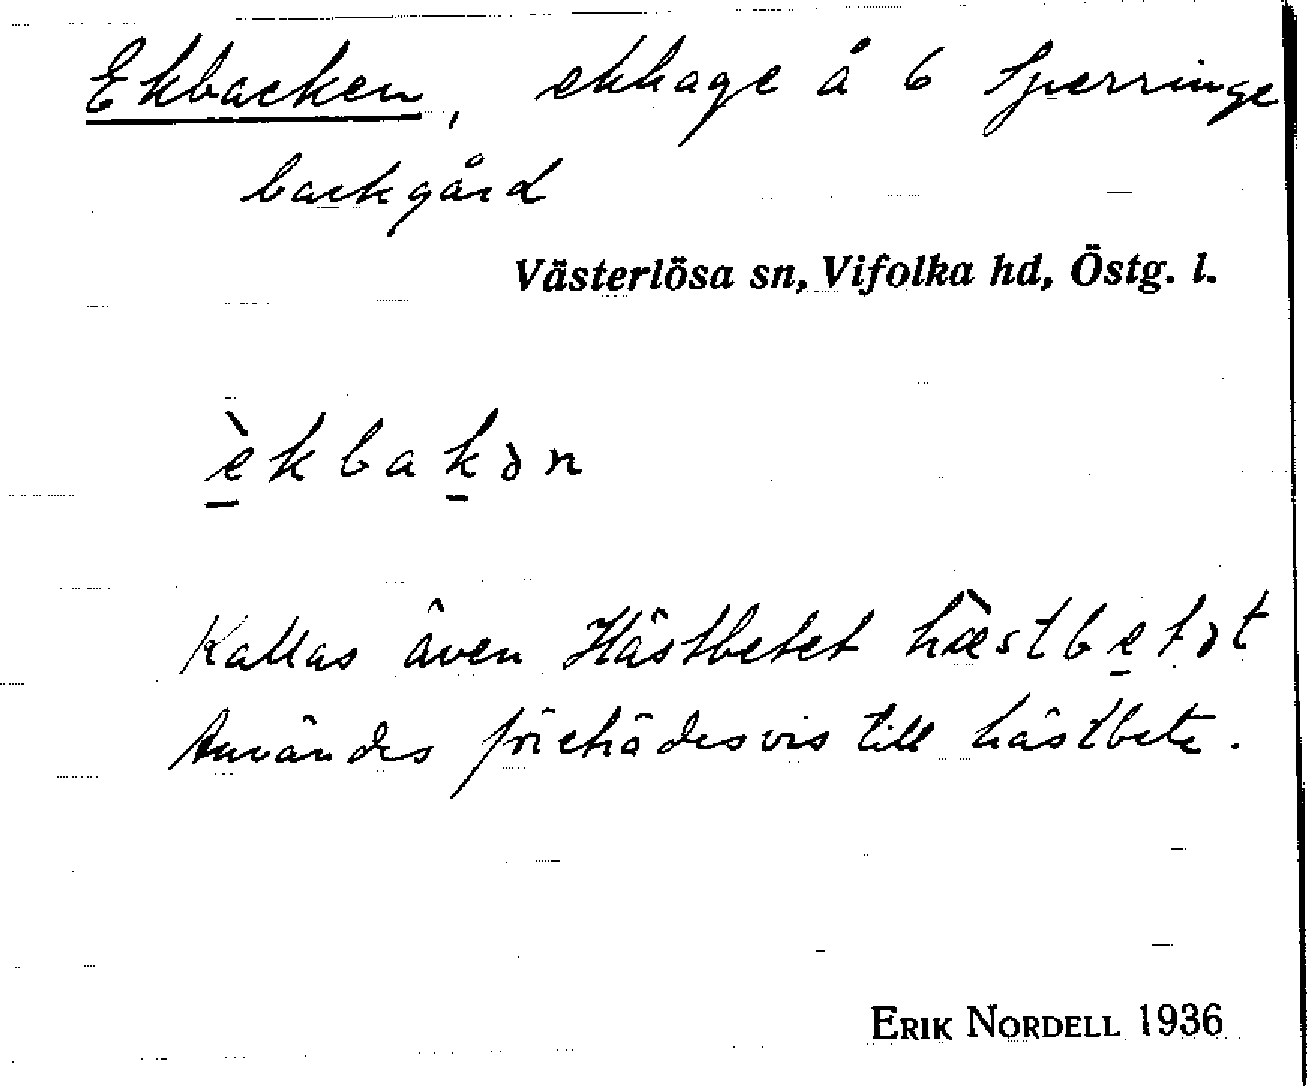 Ekbacken, ekhage å 6 Sperringe
backgård
Västerlösa sn, Vifolka hd, Östg. l.
èkbakən
Kallas även Hästbetet hæ̀stbetət
Användes företrädesvis till hästbete.
ERIK NORDELL 1936